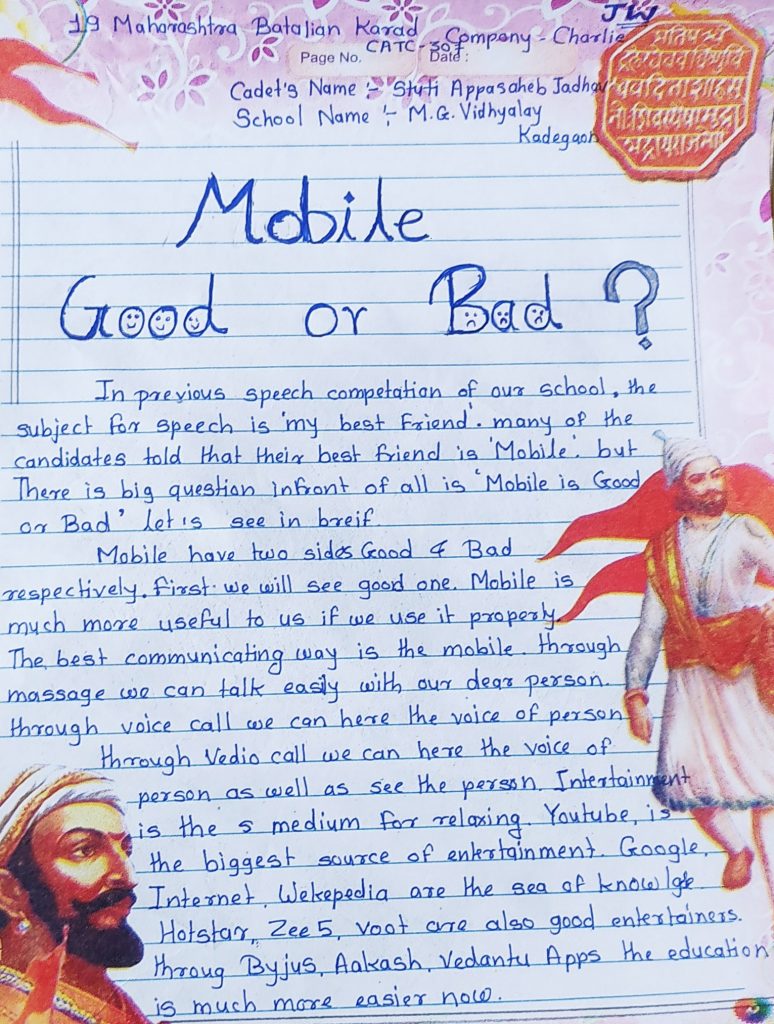 JW
19 Maharashtra Batalian Karad
CATC-307 Company - Charlie
Page No. Date :
Cadet's Name :- Stuti Appasaheb Jadhav
School Name :- M.G. Vidhyalay
Kadegaon
Mobile
Good or Bad ?
In previous speech competation of our school, the
subject for speech is 'my best Friend'. many of the
candidates told that their best friend is 'Mobile'. but
There is big question infront of all is 'Mobile is Good
or Bad' let's see in breif.
Mobile have two sides Good & Bad
respectively. First we will see good one. Mobile is
much more useful to us if we use it properly.
The best communicating way is the mobile. through
massage we can talk easily with our dear person.
through voice call we can here the voice of person
through Vedio call we can here the voice of
person as well as see the person. Intertainment
is the s medium for relaxing. Youtube, is
the biggest source of enkertainment. Google,
Internet, Wekepedia are the sea of knowlge
Hotstar, Zee5, voot are also good entertainers.
throug Byjus, Aakash, Vedantu Apps the education
is much more easier now.